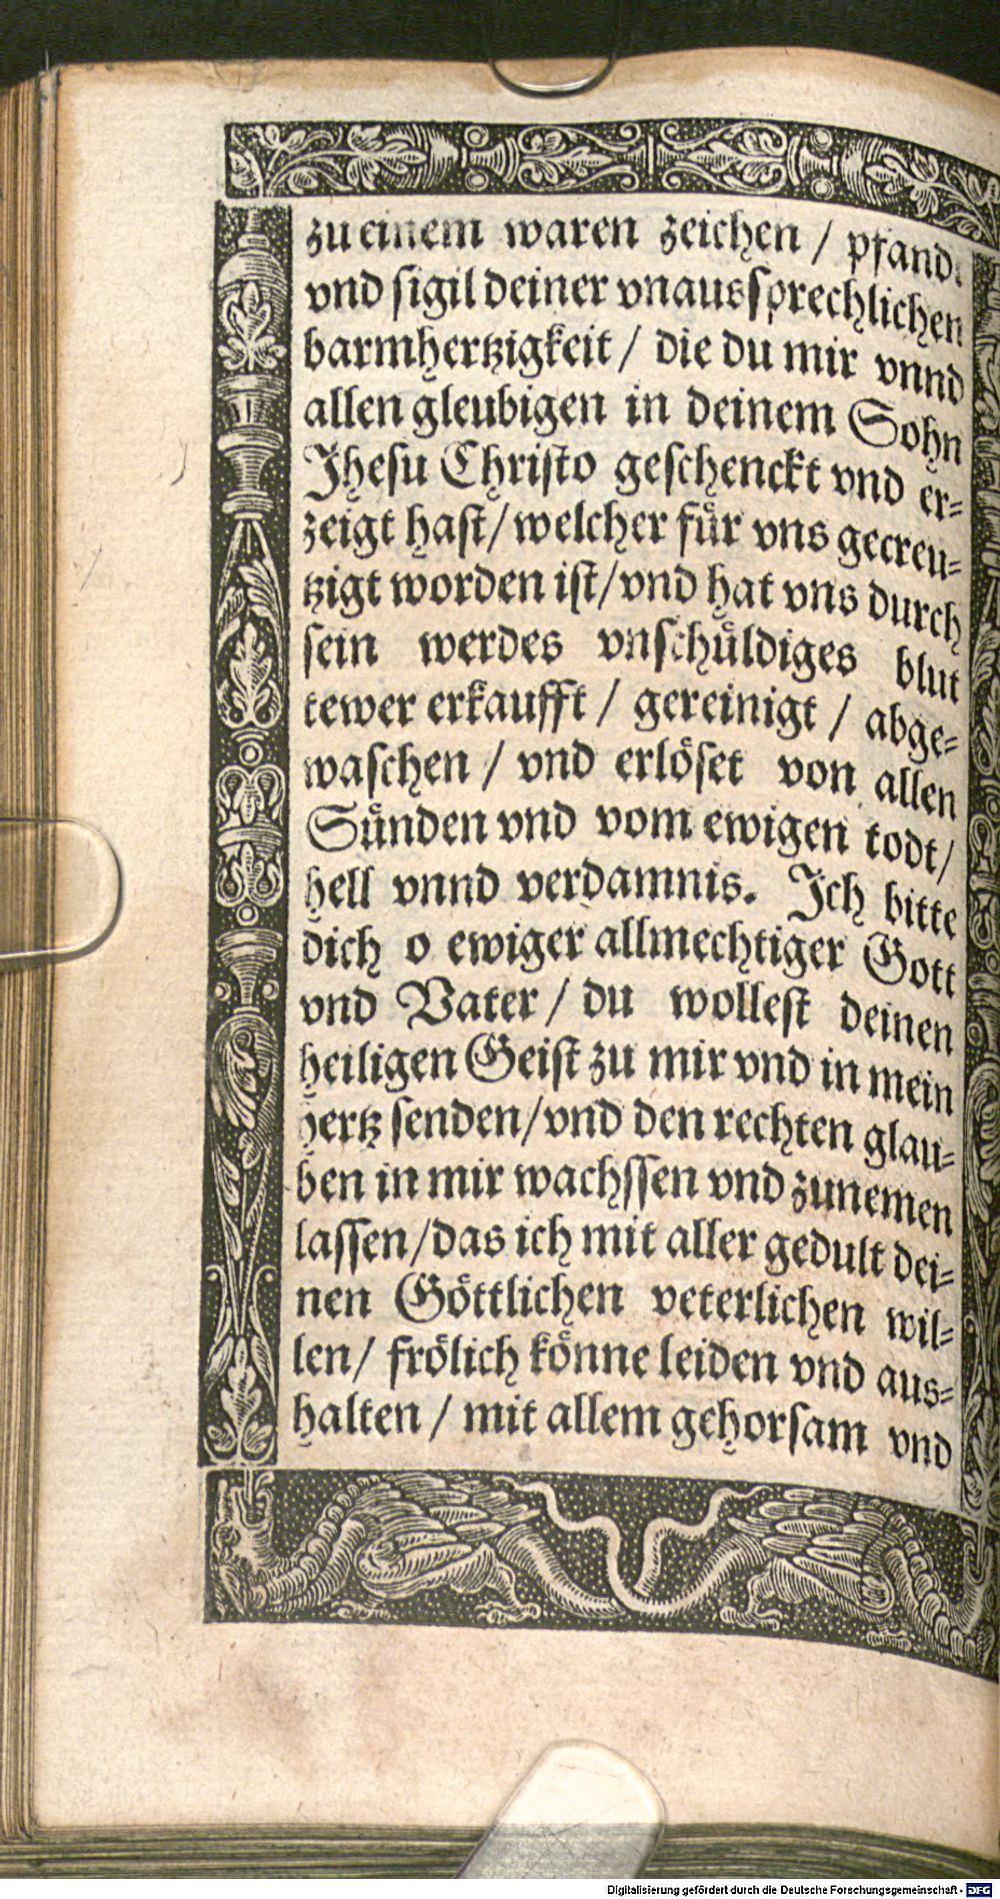 zu einem waren zeichen / pfand
vnd sigil deiner vnaussprechlichen
barmhertzigkeit / die du mir vnnd
allen gleubigen in deinem Sohn
Jhesu Christo geschenckt vnd er⸗
zeigt hast / welcher für vns gecreu⸗
tzigt worden ist / vnd hat vns durch
sein werdes vnschüldiges blut
tewer erkaufft / gereinigt / abge⸗
waschen / vnd erlöset von allen
Sünden vnd vom ewigen todt /
hell vnnd verdamnis. Jch bitte
dich o ewiger allmechtiger Gott
vnd Vater / du wollest deinen
heiligen Geist zu mir vnd in mein
hertz senden / vnd den rechten glau⸗
ben in mir wachssen vnd zunemen
lassen / das ich mit aller gedult dei⸗
nen Göttlichen veterlichen wil⸗
len / frölich könne leiden vnd aus⸗
halten / mit allem gehorsam vnd
Digitalisierung gefördert durch die Deutsche Forschungsgemeinschaft - DFG